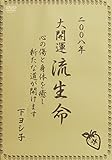 二〇〇八年
大開運 流生命
心の傷と身体を癒し
新たな道が開けます
下ヨシ子